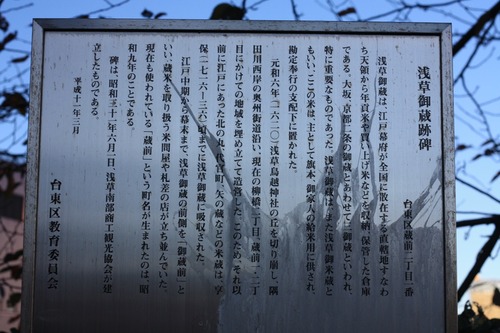 浅草御蔵跡碑
台東区蔵前二丁目一番
浅草御蔵は、江戸幕府が全国に散在する直轄地すなわ
ち天領から年貢米や買い上げ米などを収納、保管した倉庫
である。大坂、京都二条の御蔵とあわせて三御蔵といわれ、
特に重要なものであった。浅草御蔵は、また浅草御米蔵と
もいい、ここの米は、主として旗本、御家人の給米用に供され、
勘定奉行の支配下に置かれた。
元和六年(一六二〇)浅草鳥越神社の丘を切り崩し、隅
田川西岸の奥州街道沿い、現在の柳橋二丁目、蔵前一、二丁
目にかけての地域を埋め立て造営された。このため、それ以
前に江戸にあった北の丸、代官町、矢の蔵などの米蔵は、享
保(一七一六〜三六)頃までに浅草御蔵に吸収された。
江戸中期から幕末まで、浅草御蔵の前側を「御蔵前」と
いい、蔵米を取り扱う米問屋や札差の店が立ち並んでいた。
現在も使われている「蔵前」という町名が生まれたのは、昭
和九年のことである。
碑は、昭和三十一年六月一日、浅草南部商工観光協会が建
立したものである。
平成十一年三月
台東区教育委員会